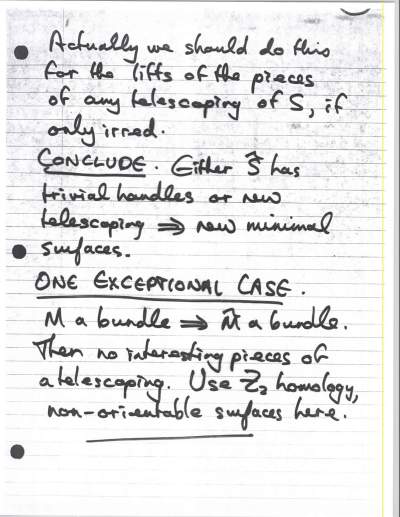 Actually we should do this
for the lifts of the pieces
of any telescoping of S, if
only irred.
CONCLUDE. Either Ŝ has
trivial handles or new
telescoping ⇒ new minimal
surfaces.
ONE EXCEPTIONAL CASE.
M a bundle ⇒ M̂ a bundle.
Then no interesting pieces of
a telescoping. Use Z₂ homology,
non-orientable surfaces here.